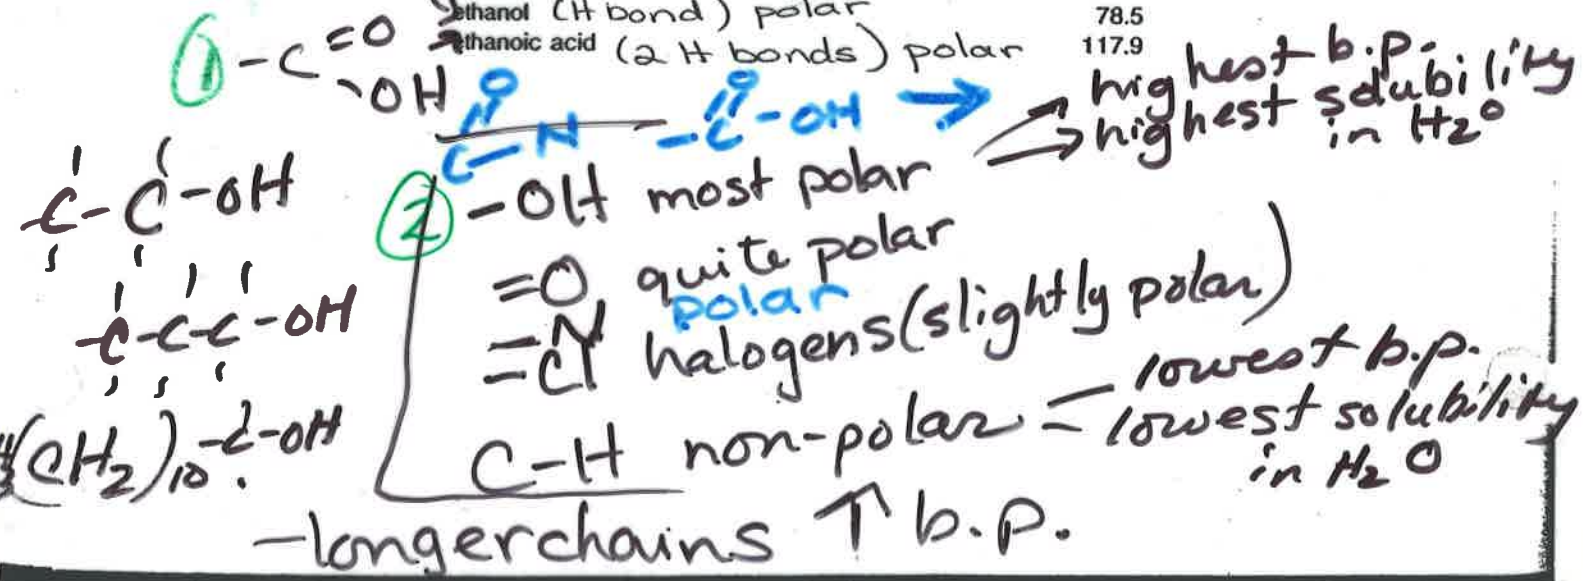 ethanol (H bond) polar 78.5
ethanoic acid (2 H bonds) polar 117.9
① -C =O -OH
C=O -N -C=O -OH → highest b.p.
highest solubility in H2O
-C-C-OH
② -OH most polar
=O, quite polar
-C-C-C-OH
=N polar
-Cl halogens (slightly polar)
(CH2)10-C-OH
C-H non-polar = lowest b.p.
lowest solubility in H2O
-longer chains ↑ b.p.